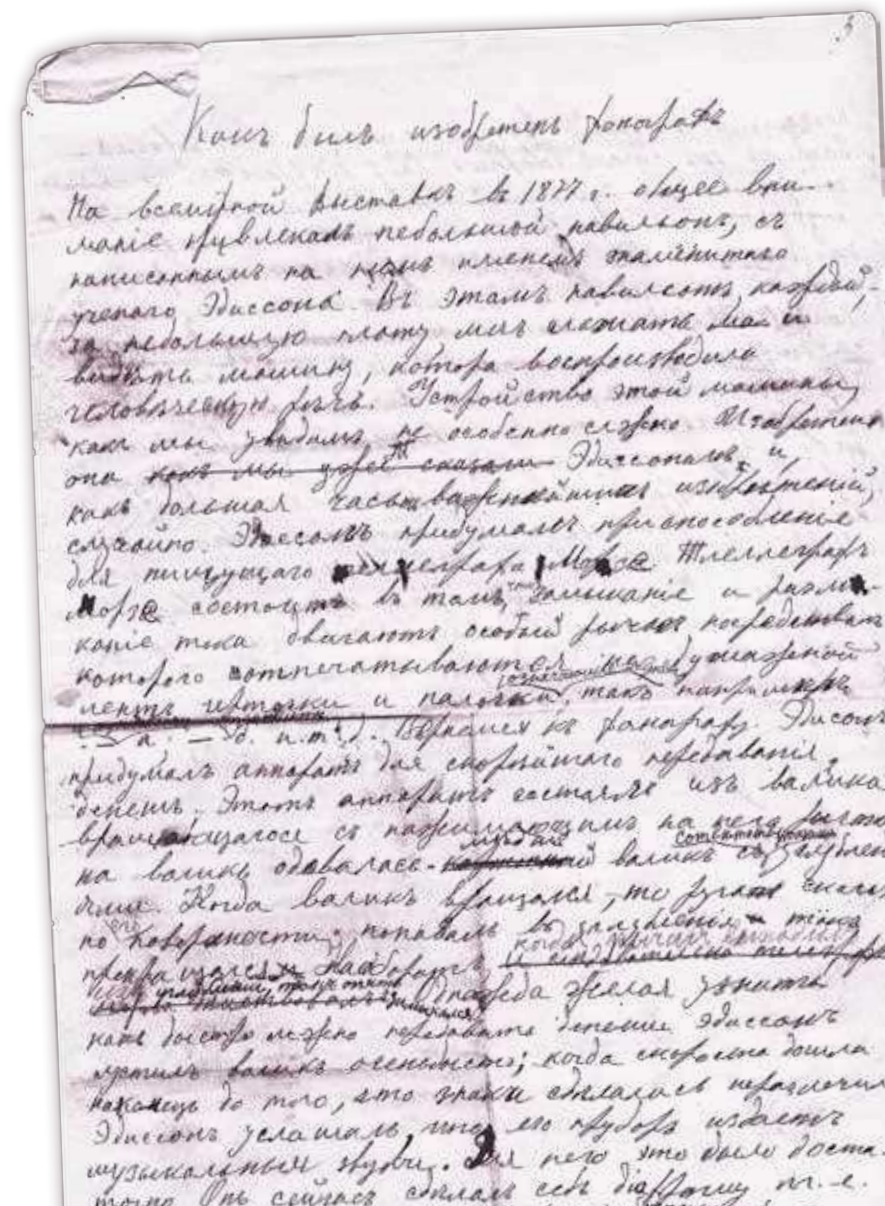 3
Какъ былъ изобретенъ фонографъ
На всемірной выставкѣ въ 1877 г. общее вни-
маніе привлекалъ небольшой павильонъ, съ
написаннымъ на немъ именемъ знаменитаго
ученаго Эдиссона. Въ этомъ павильонѣ каждый,
за небольшую плату, могъ слышать и
видѣть машину, котора воспроизводила
человѣческую рѣчь. Устройство этой машины,
какъ мы увидимъ не особенно сложно. Изобретена
она какъ мы уже сказали Эдиссономъ и,
какъ большая часть важнейшихъ изобрѣтеній,
случайно. Эдиссонъ придумалъ приспособленіе
для пишущаго телеграфа Морзе Телеграфъ
Морзе состоитъ въ томъ, что замыканіе и размы-
каніе тока двигаютъ особый рычагъ посредствомъ
которого отпечатываются на бумажной
лентѣ черточки и палочки, такъ напримѣръ
а, — б. и.т.). Вернемся къ фонографу. Эдисонъ
придумалъ аппаратъ для скорейшаго передаванія
депешъ. Этотъ аппаратъ состоялъ изъ валика
вращающагося съ нажимающимъ на него рычагомъ
на валикъ одевалась валикъ съ углублені-
ями. Когда валикъ вращался, то рычагъ скользилъ
по его поверхности; попадалъ въ углубленья токъ
прекращался наоборотъ когда рычагъ
Однажды желая узнать
какъ быстро можно передавать депеши Эдиссонъ
пустилъ валикъ очень быстро; когда скорость дошла
наконецъ до того, что знаки сдѣлались неразличимы
Эдиссонъ услышалъ, что его приборъ издаетъ
музыкальные звуки. Для него это было доста-
точно Онъ сейчасъ сдѣлалъ себѣ діафрагму т.е.